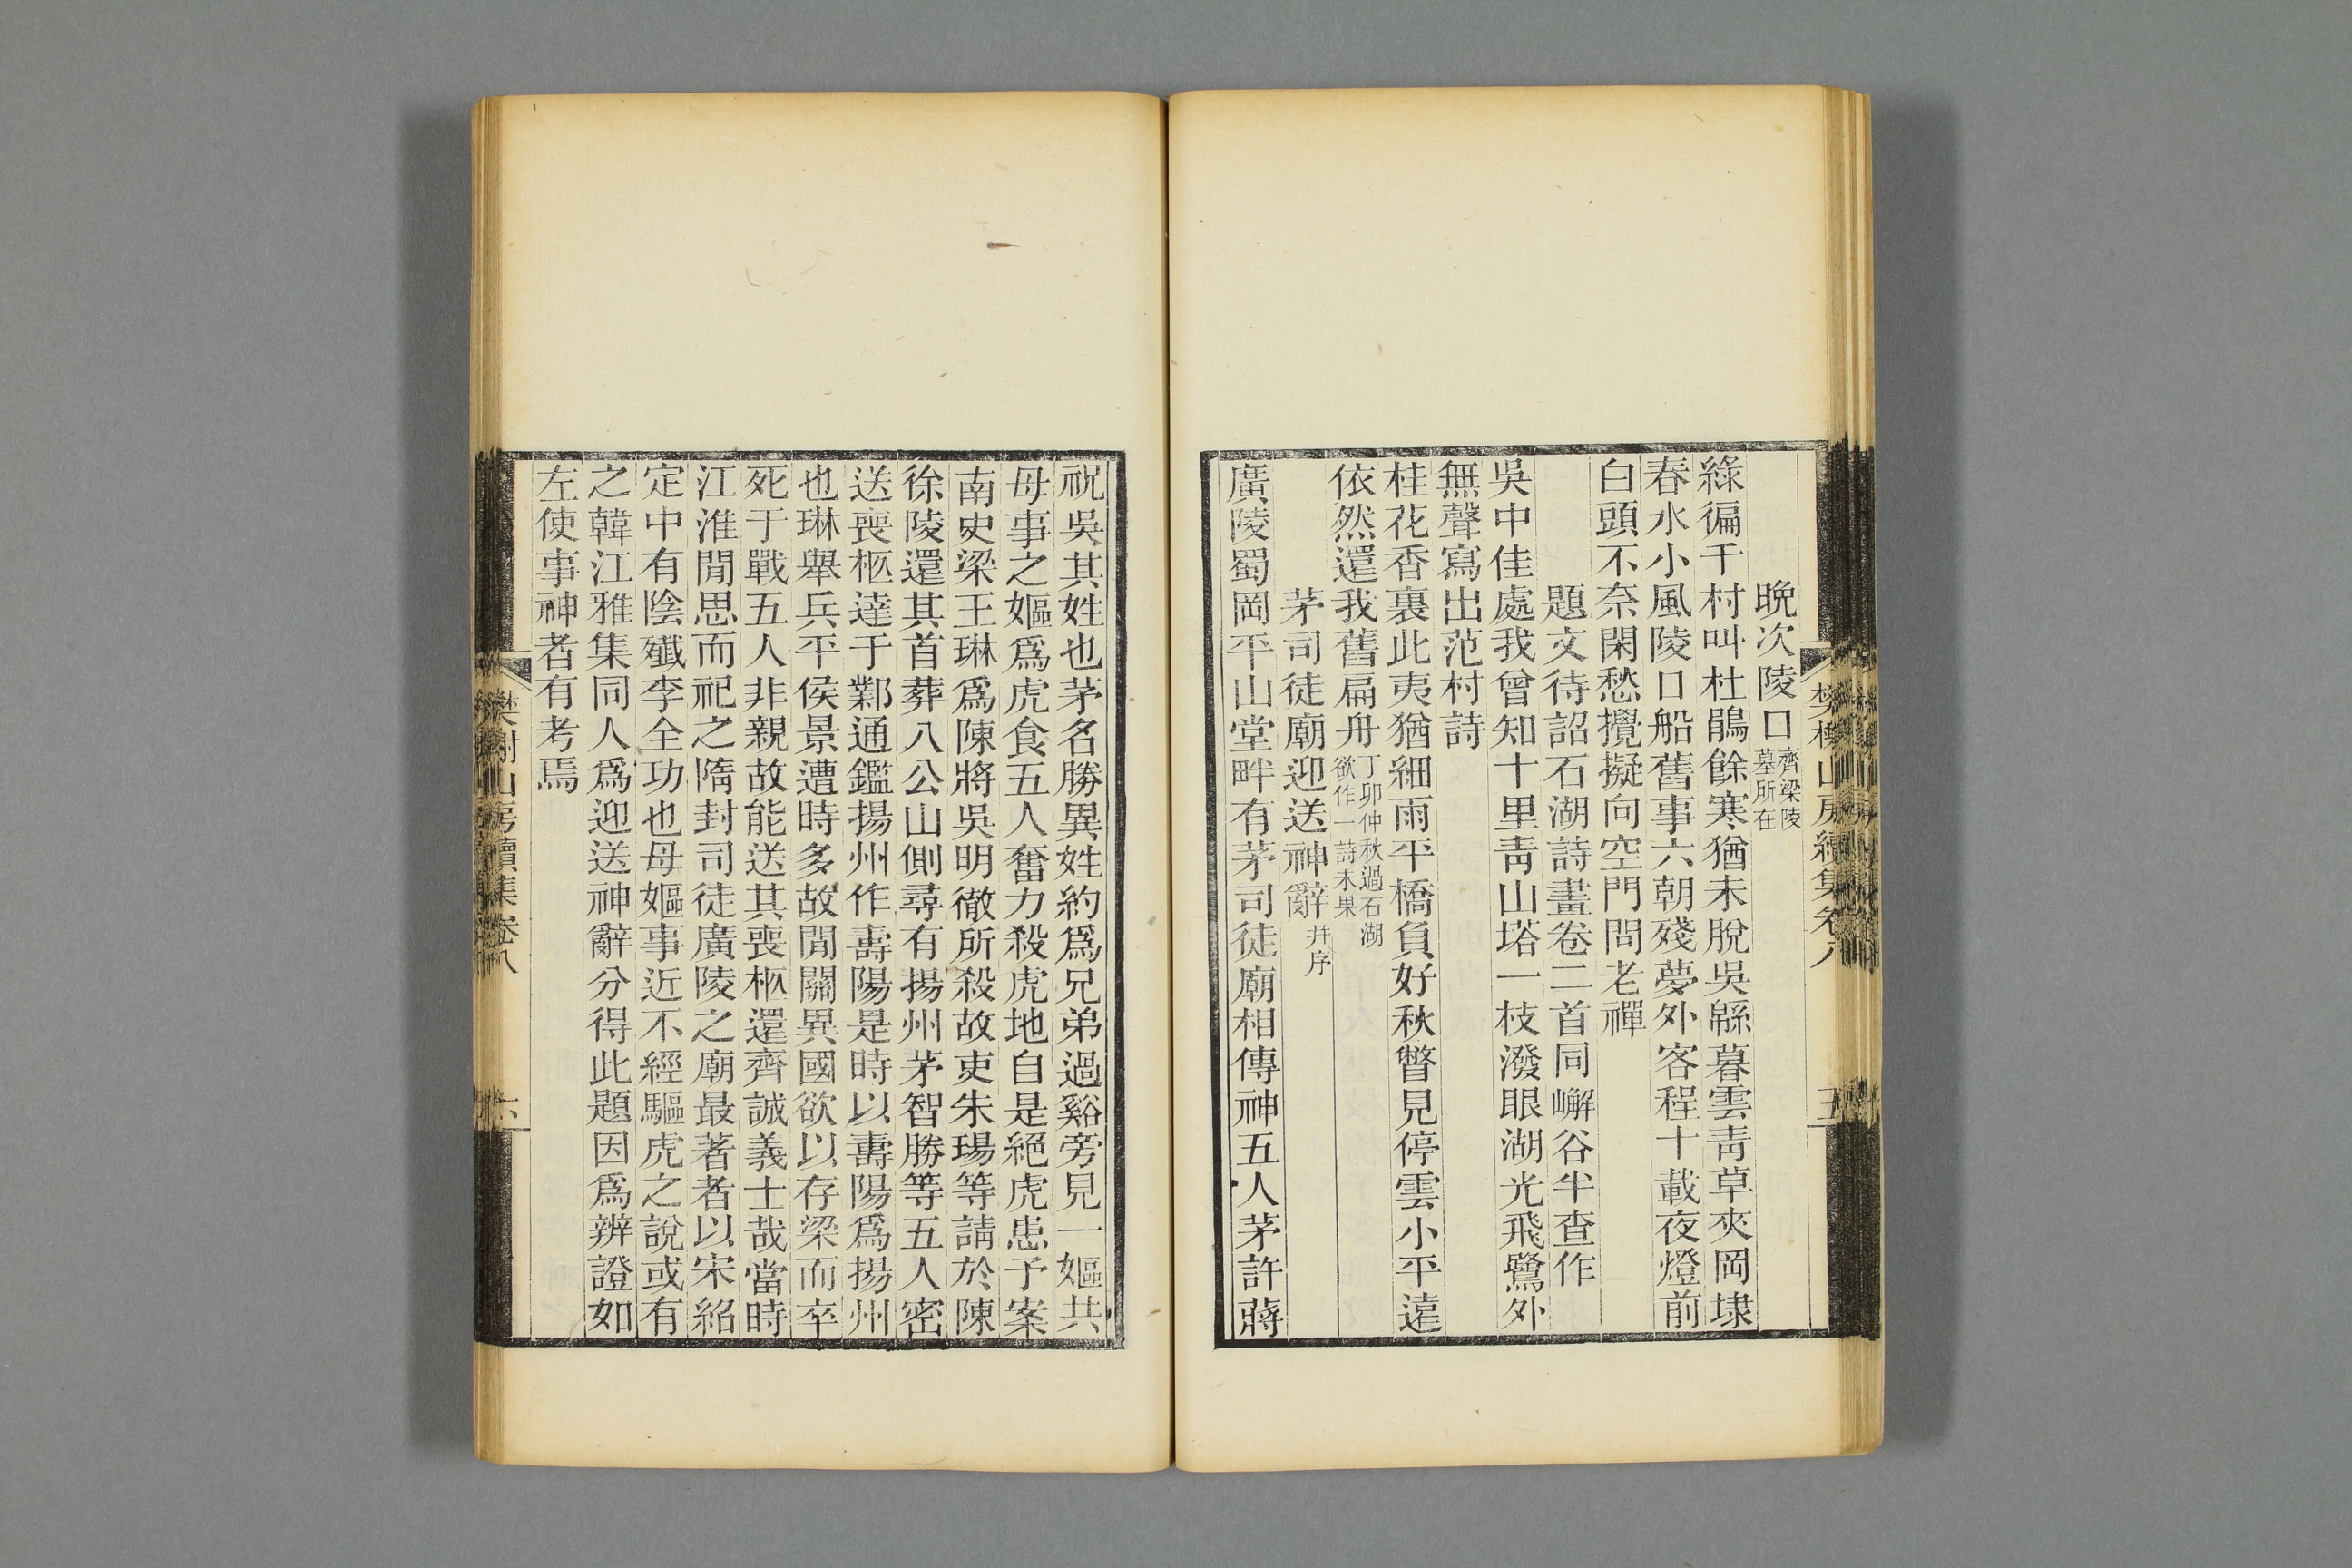 晚次陵口齊梁陵墓所在
綠徧千村叫杜鵑餘寒猶未脫吳緜暮雲靑草夾岡埭
春水小風陵口船舊事六朝殘夢外客程十載夜燈前
白頭不奈閑愁攪擬向空門問老禪
題文待詔石湖詩畫卷二首同嶰谷半查作
吳中佳處我曾知十里靑山塔一枝潑眼湖光飛鷺外
無聲寫出范村詩
桂花香裏此夷猶細雨平橋負好秋瞥見停雲小平遠
依然還我舊扁舟丁卯仲秋過石湖欲作一詩未果
茅司徒廟迎送神辭并序
廣陵蜀岡平山堂畔有茅司徒廟相傳神五人茅許蔣
樊榭山房續集卷八
五
祝吳其姓也茅名勝異姓約爲兄弟過谿旁見一嫗共
母事之嫗爲虎食五人奮力殺虎地自是絕虎患予案
南史梁王琳爲陳將吳明徹所殺故吏朱瑒等請於陳
徐陵還其首葬八公山側尋有揚州茅智勝等五人密
送喪柩達于鄴通鑑揚州作壽陽是時以壽陽爲揚州
也琳舉兵平侯景遭時多故閒關異國欲以存梁而卒
死于戰五人非親故能送其喪柩還齊誠義士哉當時
江淮閒思而祀之隋封司徒廣陵之廟最著者以宋紹
定中有陰殲李全功也母嫗事近不經驅虎之說或有
之韓江雅集同人爲迎送神辭分得此題因爲辨證如
左使事神者有考焉
樊榭山房續集卷八
六